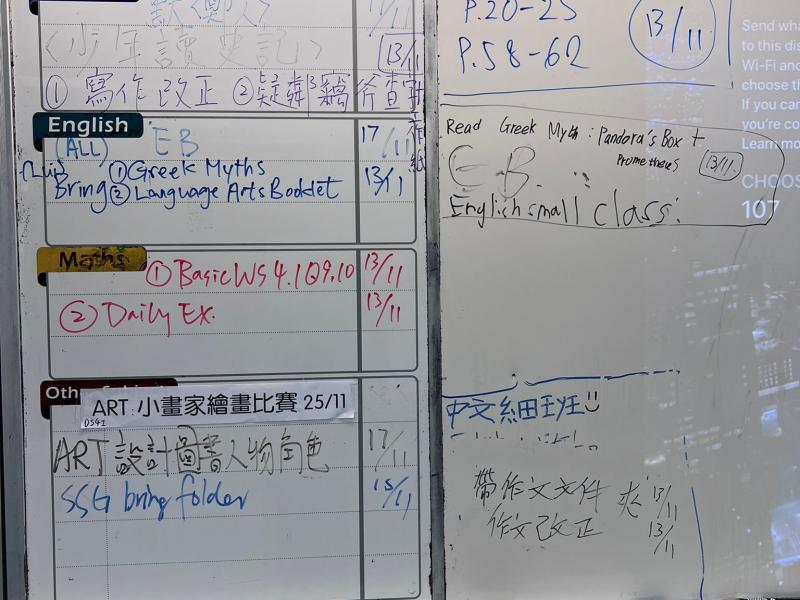 <少年讀史記> 13/11
① 寫作改正 ②疑鄰竊斧查字工作紙
English
(ALL) EB 17/11
①Greek Myths
Bring ② Language Arts Booklet 13/11
Maths
① Basic WS 4.1 Q9.10 13/11
② Daily Ex. 13/11
ART 小畫家繪畫比賽 25/11
ART 設計圖書人物角色 17/11
SSG bring folder 18/11
P.20-25
P.58-62
13/11
Read Greek Myth : Pandora's Box +
Prometheus 13/11
EB.
English small class:
中文細班
帶作文文件夾 13/11
作文改正 13/11
Send wha
to this dis
Wi-Fi and
choose th
If you can
you're co
Learn mo
CHOOS
107